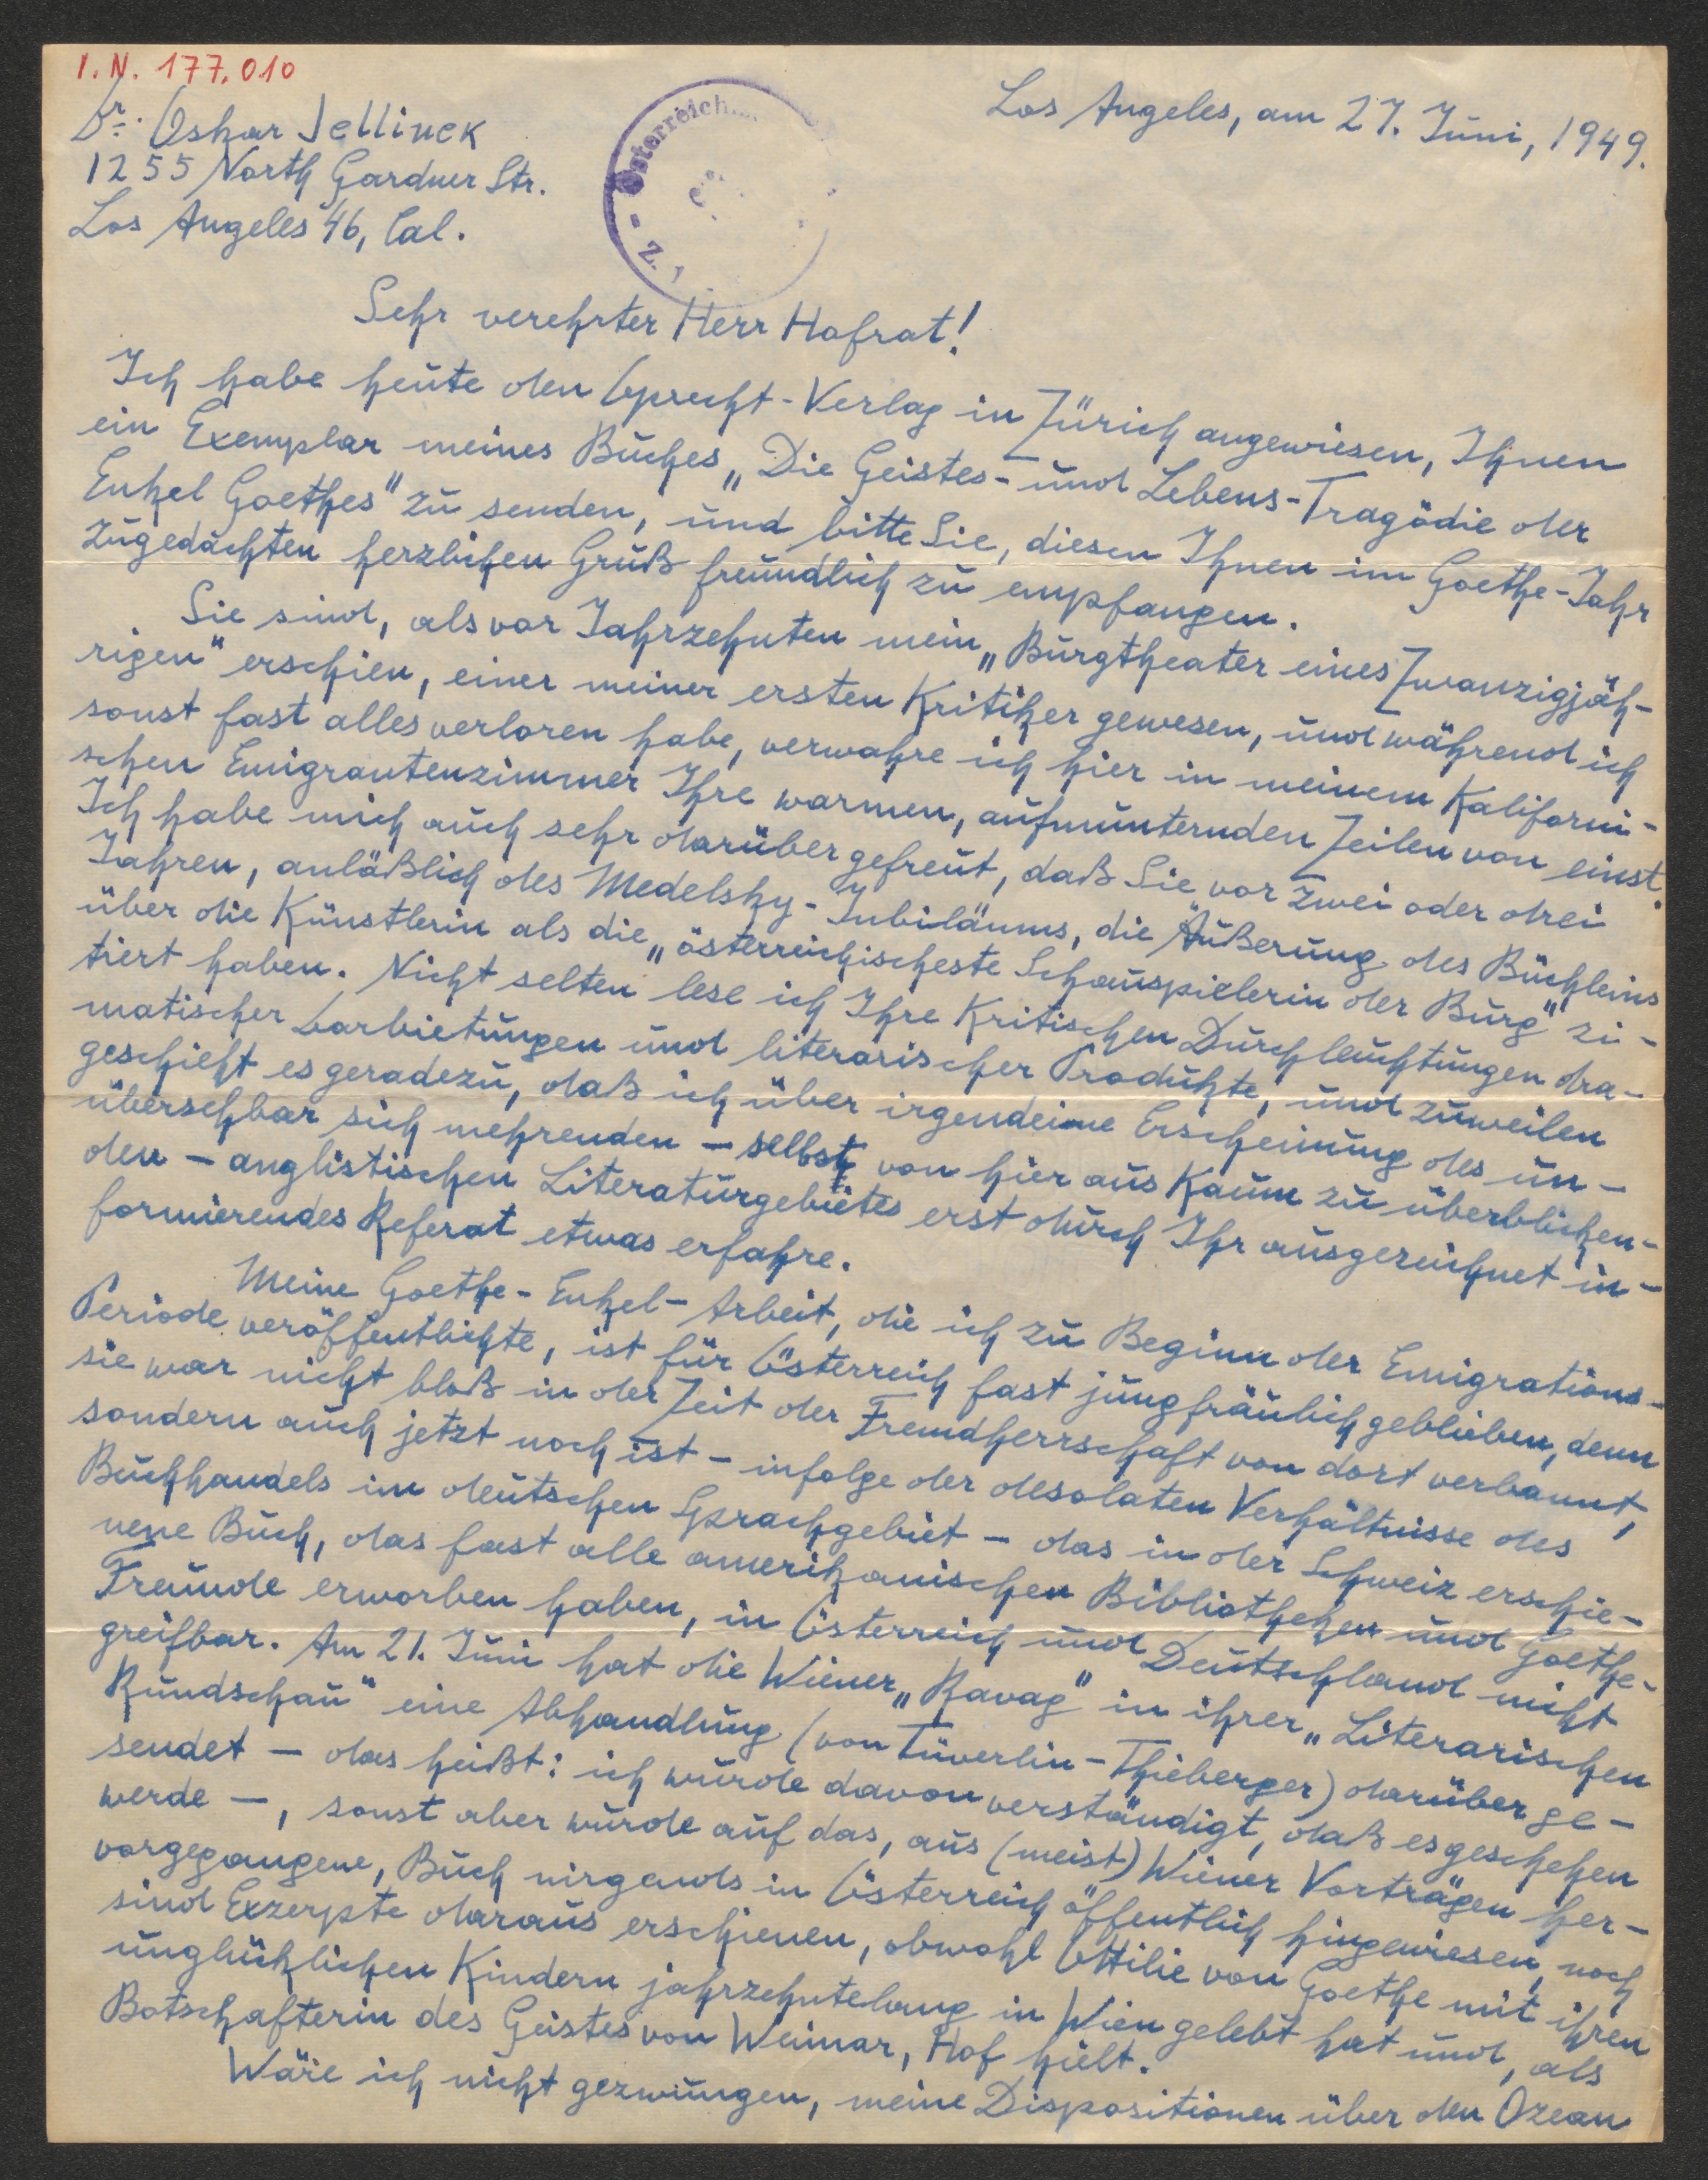 I.N. 177.010
Dr. Oskar Jellinek
1255 North Gardner Str.
Los Angeles 46, Cal.
Österreich
Z. 1
Los Angeles, am 27. Juni, 1949.
Sehr verehrter Herr Hofrat!
Ich habe heute den Oprecht-Verlag in Zürich angewiesen, Ihnen
ein Exemplar meines Buches „Die Geistes- und Lebens-Tragödie der
Enkel Goethes“ zu senden, und bitte Sie, diesen Ihnen im Goethe-Jahr
zugedachten herzlichen Gruß freundlich zu empfangen.
Sie sind, als vor Jahrzehnten mein „Burgtheater eines Zwanzigjäh-
rigen“ erschien, einer meiner ersten Kritiker gewesen, und während ich
sonst fast alles verloren habe, verwahre ich hier in meinem Kaliforni-
schen Emigrantenzimmer Ihre warmen, aufmunternden Zeilen von einst.
Ich habe mich auch sehr darüber gefreut, daß Sie vor zwei oder drei
Jahren, anläßlich des Medelsky-Jubiläums, die Äußerung des Büchleins
über die Künstlerin als die „österreichischeste Schauspielerin der Burg“ zi-
tiert haben. Nicht selten lese ich Ihre Kritischen Durchleuchtungen dra-
matischer Darbietungen und literarischer Produkte, und zuweilen
geschieht es geradezu, daß ich über irgendeine Erscheinung des un-
übersehbar sich mehrenden – selbst von hier aus Kaum zu überblicken-
den – anglistischen Literaturgebietes erst durch Ihr ausgezeichnet in-
formierendes Referat etwas erfahre.
Meine Goethe-Enkel-Arbeit, die ich zu Beginn der Emigrations-
Periode veröffentlichte, ist für Österreich fast jungfräulich geblieben, denn
sie war nicht bloß in der Zeit der Fremdherrschaft von dort verbannt,
sondern auch jetzt noch ist – infolge der desolaten Verhältnisse des
Buchhandels im deutschen Sprachgebiet – das in der Schweiz erschie-
nene Buch, das fast alle amerikanischen Bibliotheken und Goethe-
Freunde erworben haben, in Österreich und Deutschland nicht
greifbar. Am 21. Juni hat die Wiener „Ravag“ in ihrer „Literarischen
Rundschau“ eine Abhandlung (von Tüverlin-Thieberger) darüber ge-
sendet – das heißt: ich wurde davon verständigt, daß es geschehen
werde –, sonst aber wurde auf das, aus (meist) Wiener Vorträgen her-
vorgegangene, Buch nirgends in Österreich öffentlich hingewiesen, noch
sind Exzerpte daraus erschienen, obwohl Ottilie von Goethe mit ihren
unglücklichen Kindern jahrzehntelang in Wien gelebt hat und, als
Botschafterin des Geistes von Weimar, Hof hielt.
Wäre ich nicht gezwungen, meine Dispositionen über den Ozean